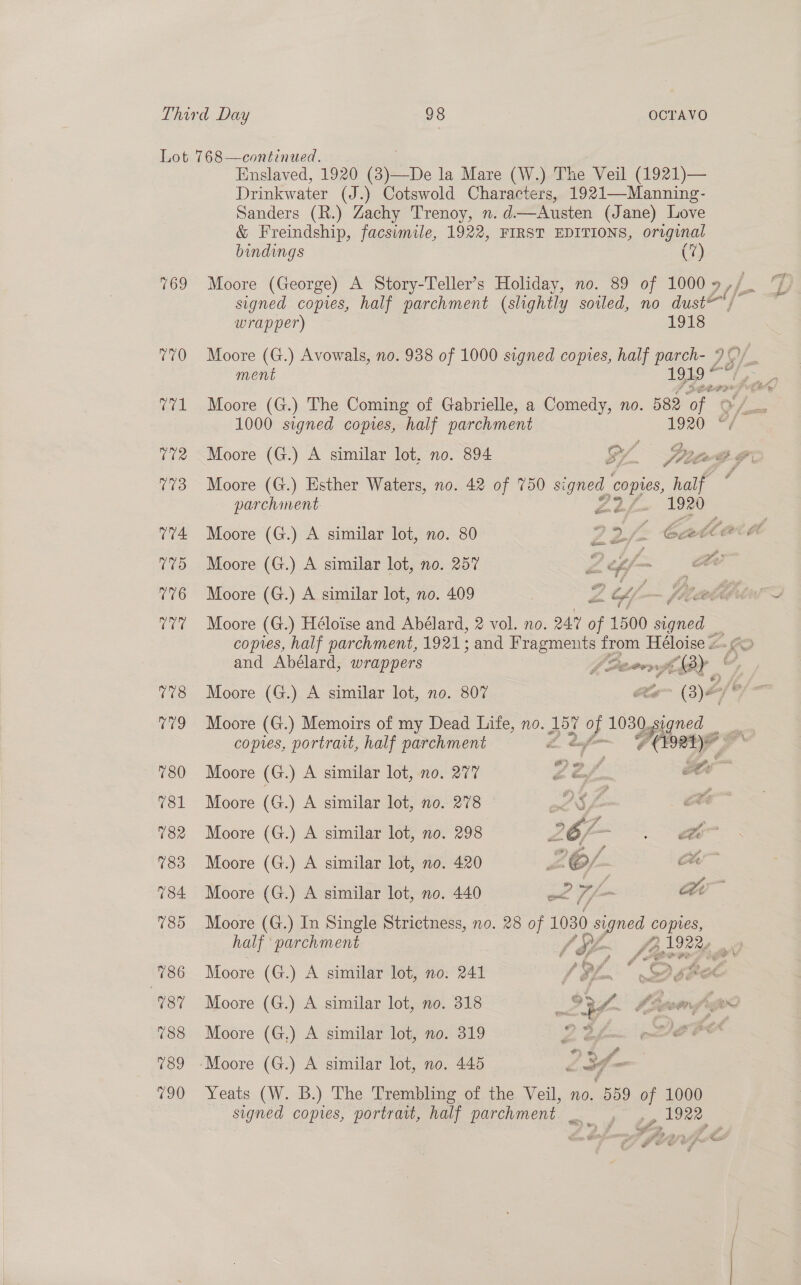 Third Day 98 OCTAVO
Lot 768—continued.
Enslaved, 1920 (3)—De la Mare (W.) The Veil (1921)—
Drinkwater (J.) Cotswold Characters, 1921—Manning-
Sanders (R.) Zachy Trenoy, n. d.—Austen (Jane) Love
& Freindship, facsimile, 1922, FIRST EDITIONS, original
bindings (7)
769 Moore (George) A Story-Teller's Holiday, no. 89 of 1000
signed copies, half parchment (slightly soiled, no dust
wrapper) 1918
770 Moore (G.) Avowals, no. 938 of 1000 signed copies, half parch-
ment 1919
771 Moore (G.) The Coming of Gabrielle, a Comedy, no. 582 of
1000 signed copies, half parchment 1920
772 Moore (G.) A similar lot, no. 894
773 Moore (G.) Esther Waters, no. 42 of 750 signed copies, half
parchment 22/- 1920
774 Moore (G.) A similar lot, no. 80 22/-
775 Moore (G.) A similar lot, no. 257
776 Moore (G.) A similar lot, no. 409
777 Moore (G.) Héloise and Abélard, 2 vol. no. 247 of 1500 signed
copies, half parchment, 1921; and Fragments from Héloise
and Abélard, wrappers (3)
778 Moore (G.) A similar lot, no. 807 (3)
779 Moore (G.) Memoirs of my Dead Life, no. 157 of 1030 signed
copies, portrait, half parchment (1921)
780 Moore (G.) A similar lot, no. 277
781 Moore (G.) A similar lot, no. 278
782 Moore (G.) A similar lot, no. 298 26/-
783 Moore (G.) A similar lot, no. 420 26/-
784 Moore (G.) A similar lot, no. 440 27/-
785 Moore (G.) In Single Strictness, no. 28 of 1030 signed copies,
half parchment 1922
786 Moore (G.) A similar lot, no. 241
787 Moore (G.) A similar lot, no. 318
788 Moore (G.) A similar lot, no. 319
789 Moore (G.) A similar lot, no. 445
790 Yeats (W. B.) The Trembling of the Veil, no. 559 of 1000
signed copies, portrait, half parchment 1922